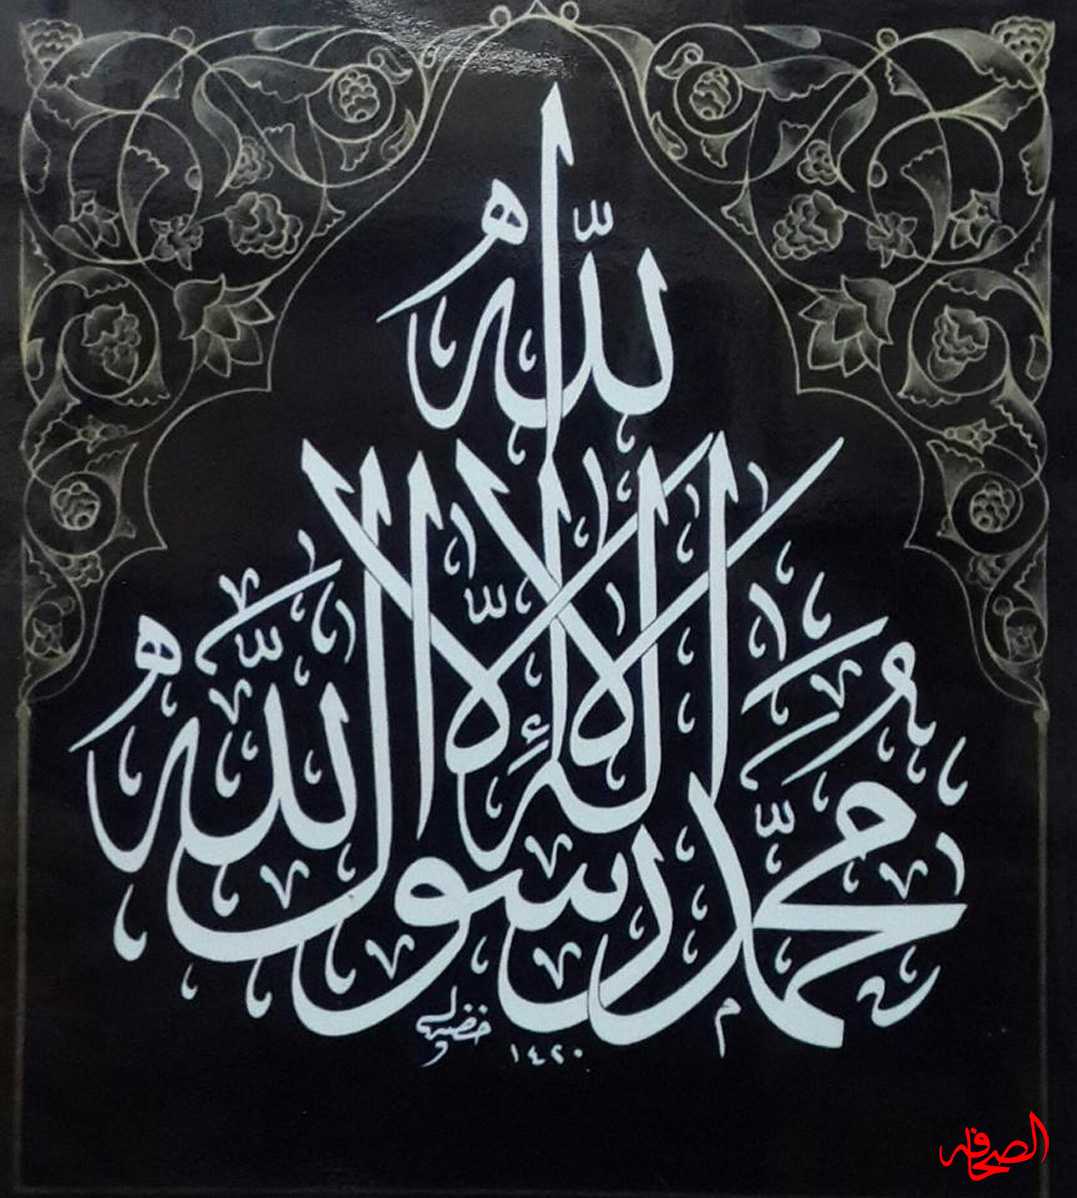 لا إله إلا الله
محمد رسول الله
١٤٢٠
الصحافه